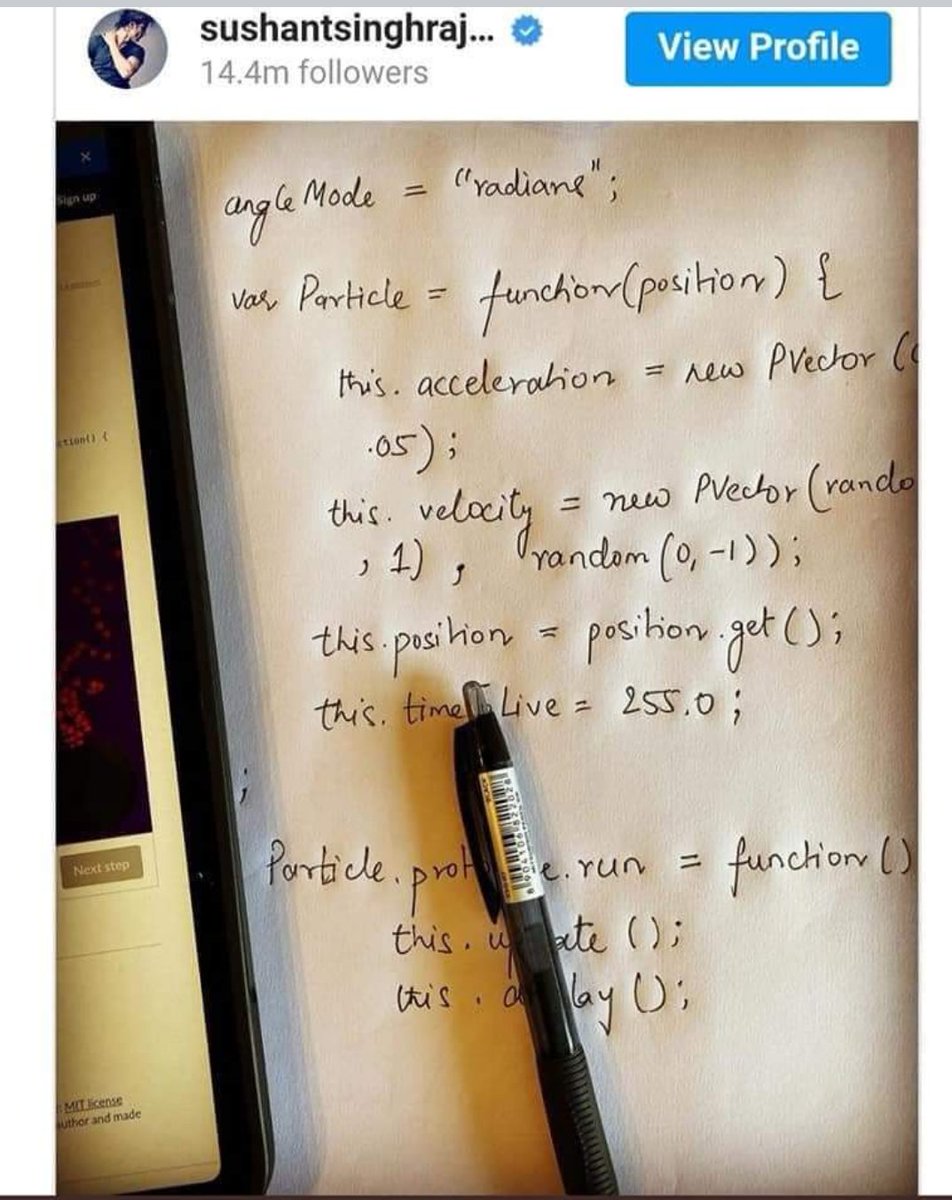 sushantsinghraj...
View Profile
14.4m followers
×
Sign up
angleMode = "radians";
var Particle = function(position) {
this. acceleration = new PVector (
.05);
ction() {
this. velocity = new PVector (rando
, 1) , random (0, -1));
this.position = position.get();
this. time Live = 255.0 ;
;
Next step
Particle. prot e. run = function ()
this. u ate ();
this . d lay ();
MIT license
author and made